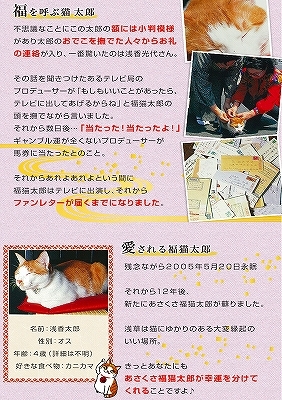 福を呼ぶ猫 太郎
不思議なことにこの太郎の額には小判模様
があり太郎のおでこを撫でた人々からお礼
の連絡が入り、一番驚いたのは浅香光代さん。
その話を聞きつけたあるテレビ局の
プロデューサーが「もしもいいことがあったら、
テレビに出してあげるからね」と福猫太郎の
頭を撫でながら言いました。
それから数日後…「当たった!当たったよ!」
ギャンブル運が全くないプロデューサーが
馬券に当たったとのこと。
それからあれよあれよという間に
福猫太郎はテレビに出演し、それから
ファンレターが届くまでになりました。
愛される福猫太郎
残念ながら2005年5月20日永眠
それから12年後、
新たにあさくさ福猫太郎が蘇りました。
浅草は猫にゆかりのある大変縁起の
いい場所。
きっとあなたにも
あさくさ福猫太郎が幸運を分けて
くれることですよ♪
名前:浅香太郎
性別:オス
年齢:4歳(詳細は不明)
好きな食べ物:カニカマ